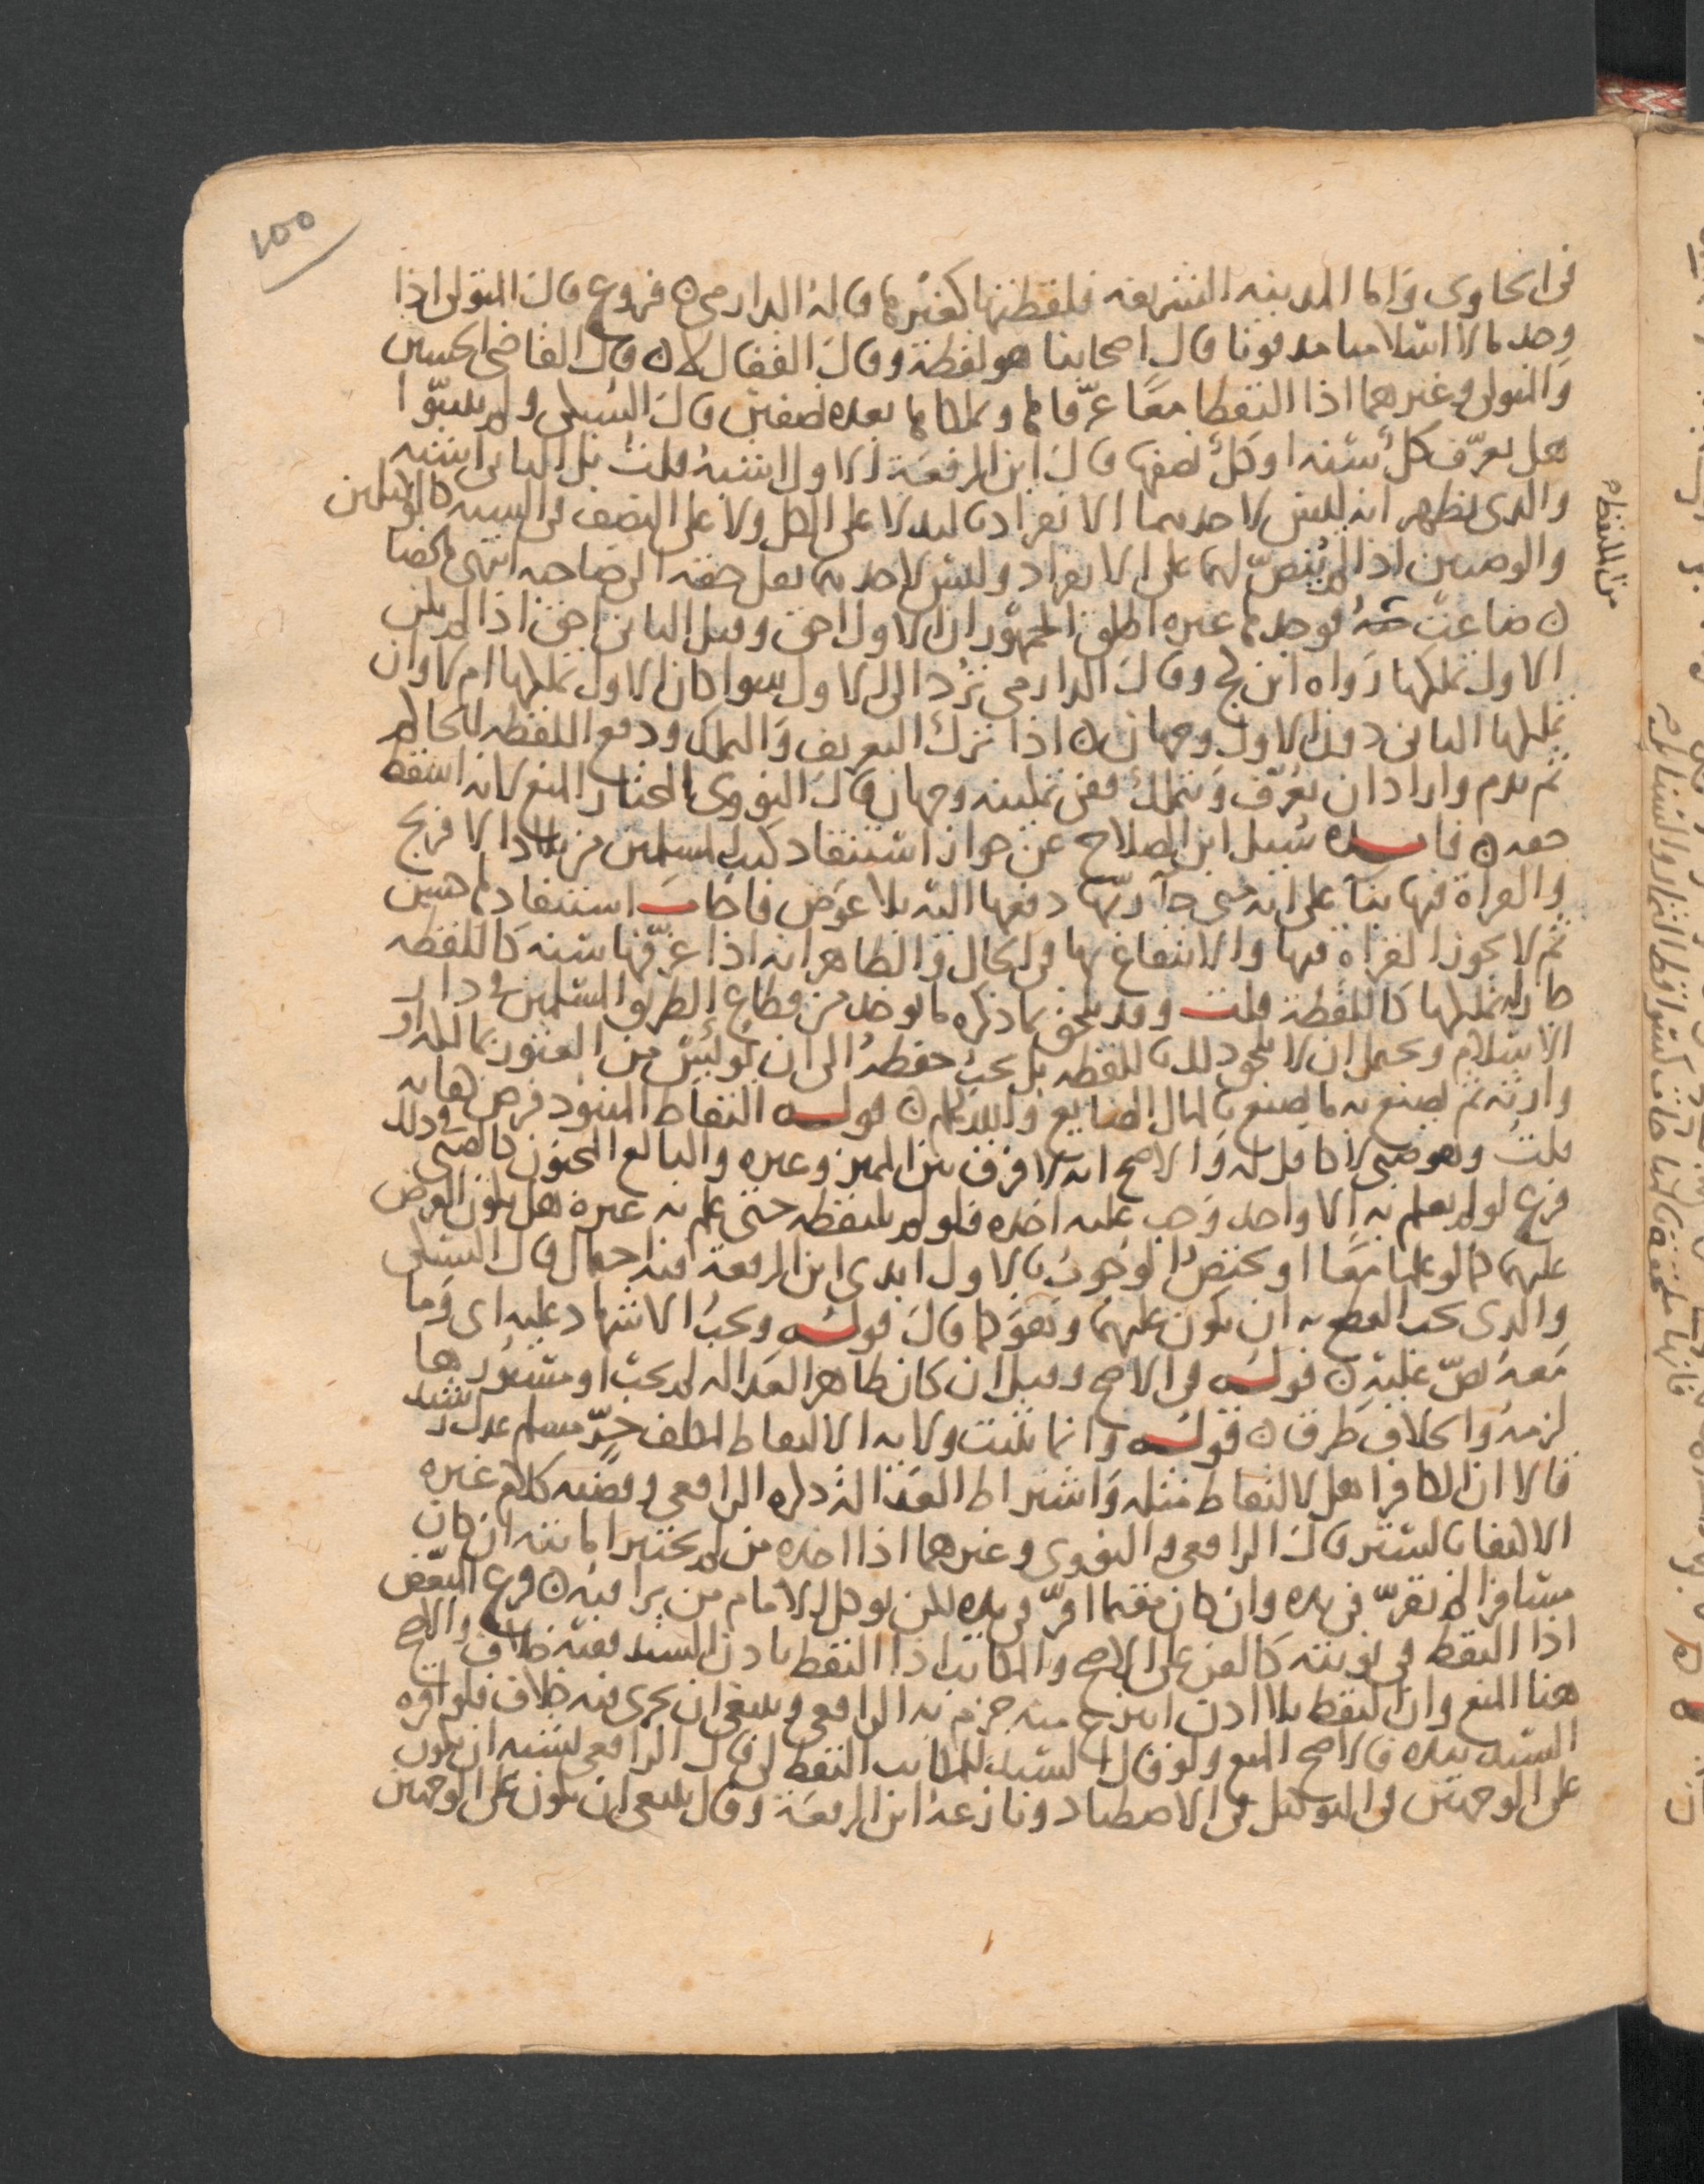 ١٥٥
في الحاوي واما المدينه الشريفه فلقطتها كغيرها قاله الدارمي ن فروع قال المتولي اذا
وجد مالا اسلاميا مدفونا قال اصحابنا هو لقطة وقال القفال لا ن قال القاضي الحسين
والمتولي وغيرهما اذا التقطا معًا عرّفاها وتملكاها بعده نصفين قال السبكي ولم يبينوا
هل يعرّف كلٌ سنه او كلٌ نصفها قال ابن الرفعة الاول اشبهُ قلت بل الثاني اشبه
والذي يظهر انه ليس لاحدهما الانفراد باليد لا على الكل ولا على النصف في السنه كالوكيلين
والوصيين اذا لم يُنصّ لهما على الانفراد وليس لاحدهما نقل حقه الى صاحبه انتهى ملخصا
ن ضاعت منهُ فوجدها غيره اطلق الجمهور ان الاول احق وقيل الثاني احق اذا لم يكن
الاول تملكها رواه ابن كج وقال الدارمي تُرد الى الاول سوا كان الاول تملكها ام لا وان
تملكها الثاني دون الاول وجهان ن اذا ترك التعريف والتملك ودفع اللقطه للحاكم
ثم ندم واراد ان يُعرّف ويتملك ففي تمكينه وجهان قال النووي المختار المنع لانه اسقط
حقه ن فايده سُيل ابن الصلاح عن جواز استنقاذ كتب المسلمين من بلاد الافرنج
والقراة فيها بناً على انه متى جا ربّها دفعها اليه بلا عوض فاجاب استنقاذها حسن
ثم لا يجوز القراة فيها والانتفاع بها في الحال والظاهر انه اذا عرّفها سنه كاللقطه
جاز له تملكها كاللقطة قلت وقد يلحق بما ذكره ما يوخذ من قطاع الطريق المسلمين في دار
الاسلام ويحتمل ان لا يلحق ذلك باللقطه بل يجبُ حفظهُ الى ان يُويس من العثور بمالكه او
وارثه ثم يصنع به ما يصنع بالمال الضايع والله اعلم ن قوله التقاط المنبوذ فرض كفايه
قلت وهو صبي لا كافل له والاصح انه لا فرق بين المميز وغيره والبالغ المجنون كالصبي في ذلك
فرع لو لم يعلم به الا واحد وجب عليه اخذه فلو لم يلتقطه حتى علم به غيره هل يكون الفرض
عليهما كما لو علما معًا او يختصُ الوجوبُ بالاول ابدى ابن الرفعة فيه احتمال قال السبكي
والذي يجب القطع به ان يكون عليهما وهو كما قال قوله ويجبُ الاشهاد عليه اي وما
معهُ نصّ عليه ن قوله في الاصح وقيل ان كان ظاهر العداله لم يجب او مستورها
لزمهُ والخلاف طرق ن قوله وانما تثبت ولاية الالتقاط لمكلف حرّ مسلم عدل رشيد
قالا ان الكافر اهل لالتقاط مثله واشتراط العدالة ذكره الرافعي وقضيه كلام غيره
الاكتفا بالستر قال الرافعي والنووي وغيرهما اذا اخذه من لم يختبر امانته ان كان
مسافرا لم يُقرّ في يده وان كان مقيما اقرّ في يده لكن يوكل الامام من يراقبه ن فرع المبعّض
اذا التقط في نوبته كالقن على الاصح والمكاتب اذا التقط باذن السيد ففيه خلاف والاصح
هنا المنع وان التقط بلا اذن انتزع منه جزم به الرافعي وينبغي ان يجري فيه خلاف فلو اقره
السيد بيده فالاصح المنع ولو قال السيد للمكاتب التقط لي قال الرافعي يشبه ان يكون
على الوجهين في التوكيل في الاصطياد ونازعهُ ابن الرفعة وقال ينبغي ان يكون على الوجهين
من الملتقط